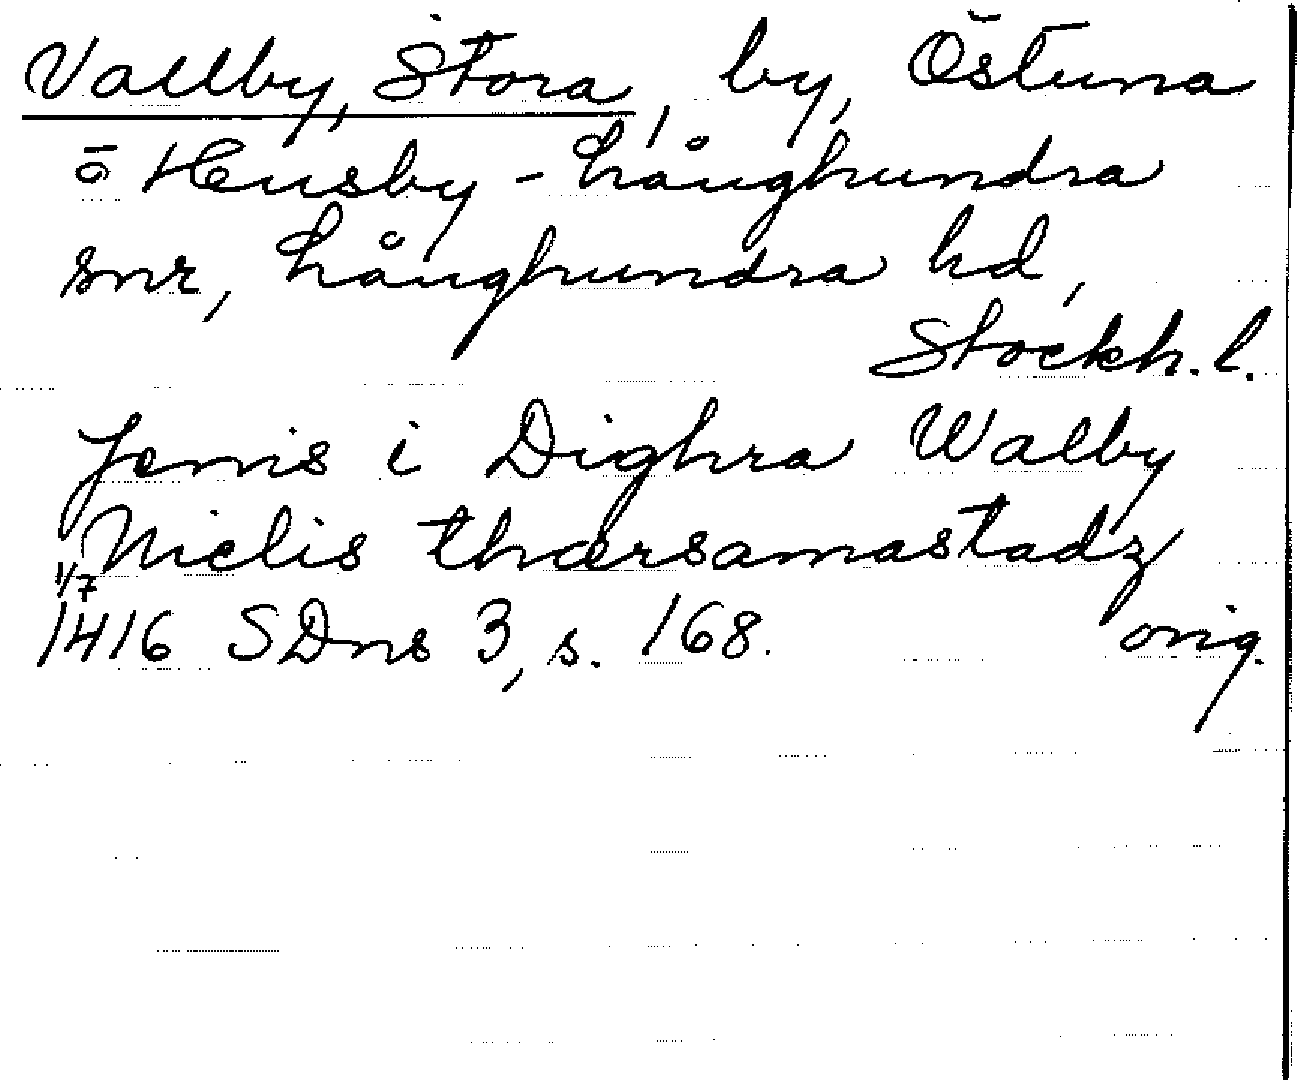 Vallby, Stora, by, Östuna
ō Husby-Långhundra
snr, Långhundra hd,
Stockh. l.
Jønis i Dighra Walby
Niclis thærsamastadz
1/7
1416 SDns 3, s. 168. orig.